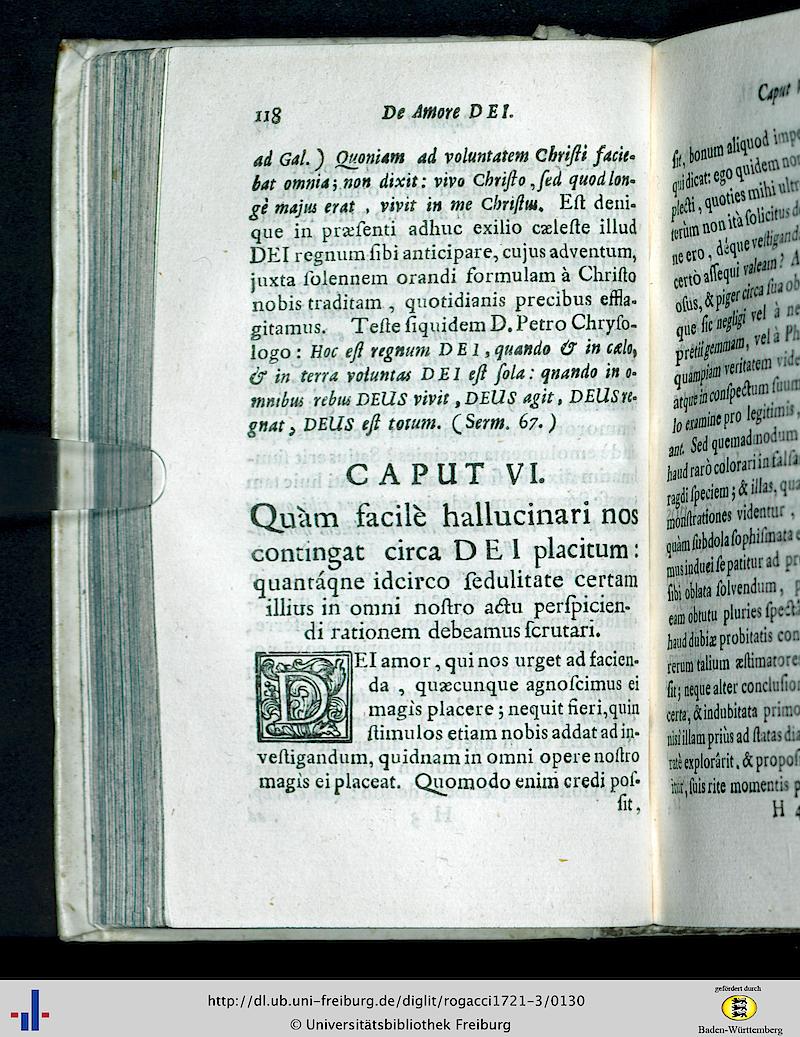 118 De Amore DEI.
ad Gal.) Quoniam ad voluntatem Chriſti facie-
bat omnia; non dixit: vivo Chriſto, ſed quod lon-
gè majus erat, vivit in me Chriſtus. Eſt deni-
que in præſenti adhuc exilio cæleſte illud
DEI regnum ſibi anticipare, cujus adventum,
juxta ſolennem orandi formulam à Chriſto
nobis traditam, quotidianis precibus effla-
gitamus. Teſte ſiquidem D. Petro Chryſo-
logo: Hoc eſt regnum DEI, quando & in cælo,
& in terra voluntas DEI eſt ſola: qnando in o-
mnibus rebus DEUS vivit, DEUS agit, DEUS re-
gnat, DEUS eſt totum. (Serm. 67.)
CAPUT VI.
Quàm facilè hallucinari nos
contingat circa DEI placitum:
quantáqne idcirco ſedulitate certam
illius in omni noſtro actu perſpicien-
di rationem debeamus ſcrutari.
DEI amor, qui nos urget ad facien-
da, quæcunque agnoſcimus ei
magis placere; nequit fieri, quin
ſtimulos etiam nobis addat ad in-
veſtigandum, quidnam in omni opere noſtro
magis ei placeat. Quomodo enim credi poſ-
ſit,
Caput
ſit, bonum aliquod
qui dicat: ego quidem
plecti, quoties mihi
terùm non ità ſolicitus
ne ero, déque
certò aſſequi valeam?
oſus, & piger circa ſua
que ſic negligi vel à
pretii gemmam, vel à
quampiam veritatem
atque in conſpectum
lo examine pro legitimis,
ant. Sed quemadmodum
haud rarò colorari in
ragdi ſpeciem; & illas,
monſtrationes videntur,
quàm ſubdola ſophiſmata
mus indui ſe patitur ad
ſibi oblata ſolvendum,
eam obtutu pluries
haud dubiæ probitatis
rerum talium
ſit; neque alter
certa, & indubitata
niſi illam priùs ad ſtatas
explorârit, &
ſuis rite momentis
H
http://dl.ub.uni-freiburg.de/diglit/rogacci1721-3/0130
© Universitätsbibliothek Freiburg
gefördert durch
Baden-Württemberg